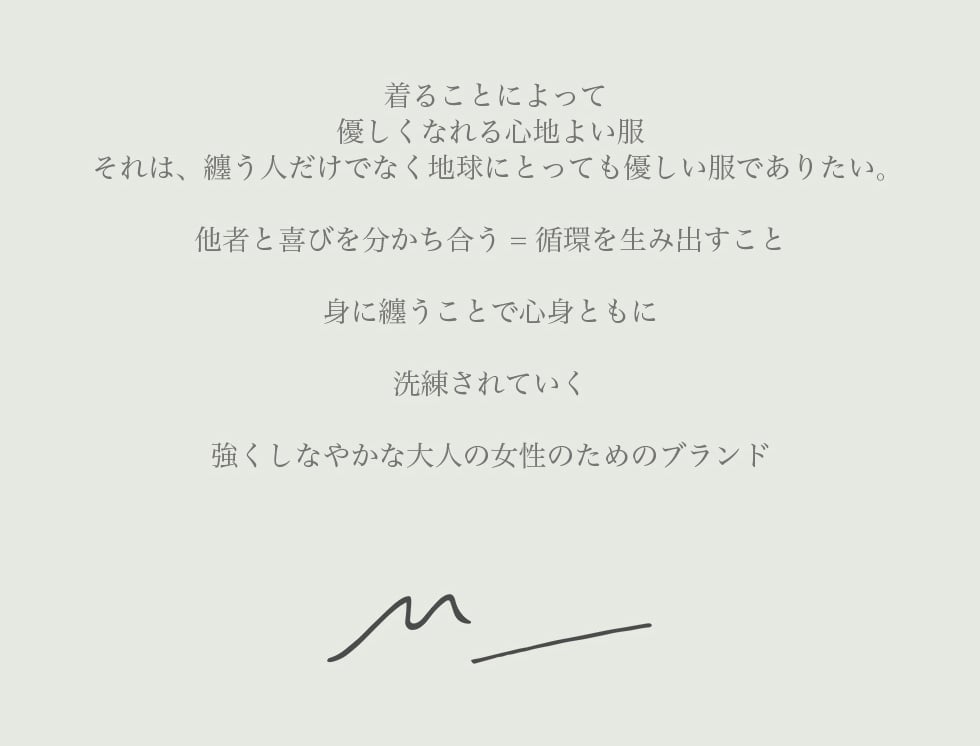 着ることによって
優しくなれる心地よい服
それは、纏う人だけでなく地球にとっても優しい服でありたい。
他者と喜びを分かち合う = 循環を生み出すこと
身に纏うことで心身ともに
洗練されていく
強くしなやかな大人の女性のためのブランド